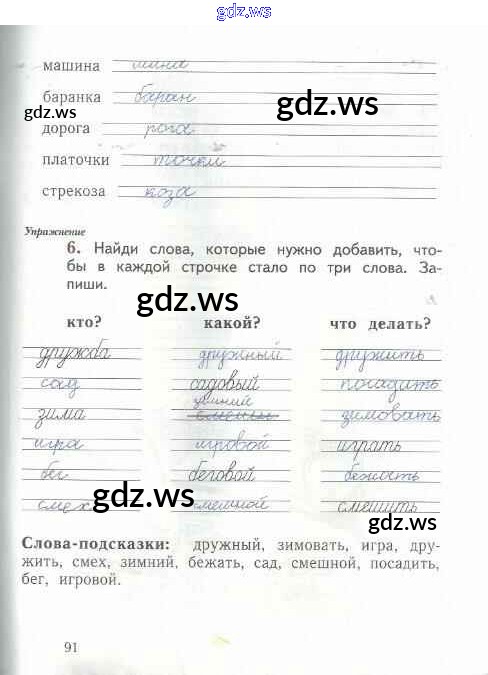 gdz.ws
машина мина
баранка баран
gdz.ws gdz.ws
дорога рога
платочки точки
стрекоза коза
Упражнение
6. Найди слова, которые нужно добавить, что-
бы в каждой строчке стало по три слова. За-
пиши.
gdz.ws
кто? какой? что делать?
дружба дружный дружить
сад садовый посадить
зима зимний зимовать
игра игровой играть
бег беговой бежать
смех смешной смешить
gdz.ws
gdz.ws
Слова-подсказки: дружный, зимовать, игра, дру-
жить, смех, зимний, бежать, сад, смешной, посадить,
бег, игровой.
91